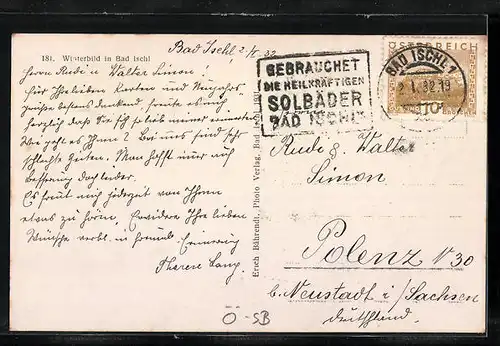 181. Winterbild in Bad Ischl
Bad Ischl, 2/I. 32
Herrn Rudi u Walter Simon.
Für Ihre lieben Karten und Neujahrs-
grüsse bestens dankend, freute es mich
herzlich dass Sie sich so lieb meiner erinnerten
Wie geht es Ihnen? Bei uns sind sehr
schlechte Zeiten. Man hofft nur auf
besserung doch leider.
Es freut mich jederzeit von Ihnen
etwas zu hören. Erwidere Ihre lieben
Wünsche verbl. in freundl. Erinnerung
Therese Lang.
Erich Bährendt, Photo Verlag, Bad Ischl
GEBRAUCHET
DIE HEILKRÄFTIGEN
SOLBÄDER
BAD ISCHL'S
ÖSTERREICH
BAD ISCHL 1
2.I.32.19
10
Rudi & Walter
Simon
Polenz N 30
b. Neustadt i/Sachsen
Deutschland.
Ö-SB